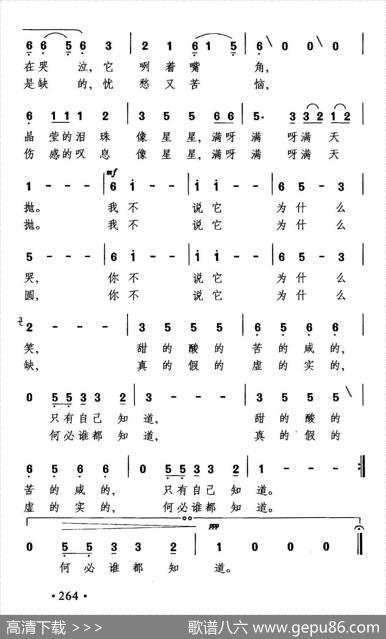 6 6 5 6 3 | 2 1 6 1 5 | 6 \ 0 0 0 |
在哭 泣,它 咧着嘴 角,
是缺 的,忧 愁又苦 恼,
6 1 1 1 2 | 3 5 5 5 6 6 | 5· 3 3 2 1 2 |
晶莹的泪 珠 像星星,满呀满 呀满天
伤感的叹 息 像星星,满呀满 呀满天
1 - - - | 6 1 - - | 1 1 - - | 6 5 - 3 |
抛。 我不 说它 为什么
抛。 我不 说它 为什么
mf
5 - - - | 6 1 - - | 1 1 - - | 6 5 - 3 |
哭, 你不 说它 为什么
圆, 你不 说它 为什么
2 - - - | 3 5 5 5 | 6 5 6 6 |
笑, 甜的酸的 苦的咸的,
缺, 真的假的 虚的实的,
0 5 5 3 3 2 | 3 - - - | 3 5 5 5 \ |
只有自己 知 道, 甜的酸的
何必谁都 知 道, 真的假的
6 5 6 6 | 0 5 5 3 3 2 | 1 - - - :||
苦的咸的, 只有自己 知 道。
虚的实的, 何必谁都 知 道。
ppp
0 5 5 3 3 2 | 1 0 0 0 ||
何必谁都 知 道。
· 264 ·
高清下载 >>> 歌谱八六 www.gepu86.com